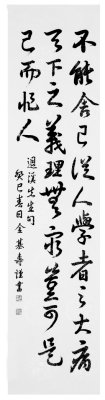 不能舍己從人學者之大病
天下之義理無窮豈可是
己而非人
退溪先生句
癸巳春日金基壽謹書